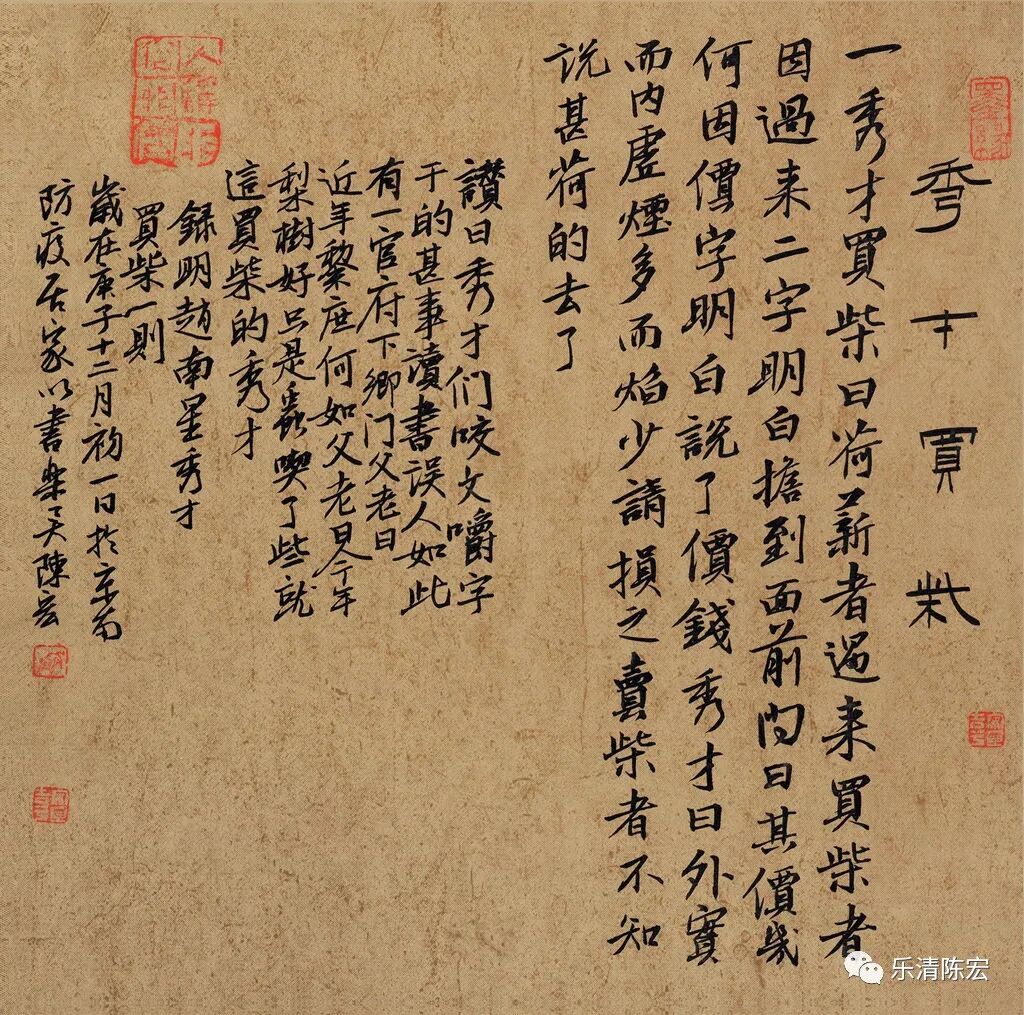 秀才買柴
一秀才買柴曰荷薪者過来買柴者
因過来二字明白擔到面前问曰其價幾
何因價字明白說了價錢秀才曰外實
而内虛煙多而焰少請損之賣柴者不知
说甚荷的去了
讃曰秀才们咬文嚼字
干的甚事讀書误人如此
有一官府下鄉门父老曰
近年黎庶何如父老曰今年
梨樹好只是蟲喫了些就
這買柴的秀才
録明趙南星秀才
買柴一則
歲在庚子十二月初一日於京南
防疫居家以書樂之天陳宏
乐清陈宏